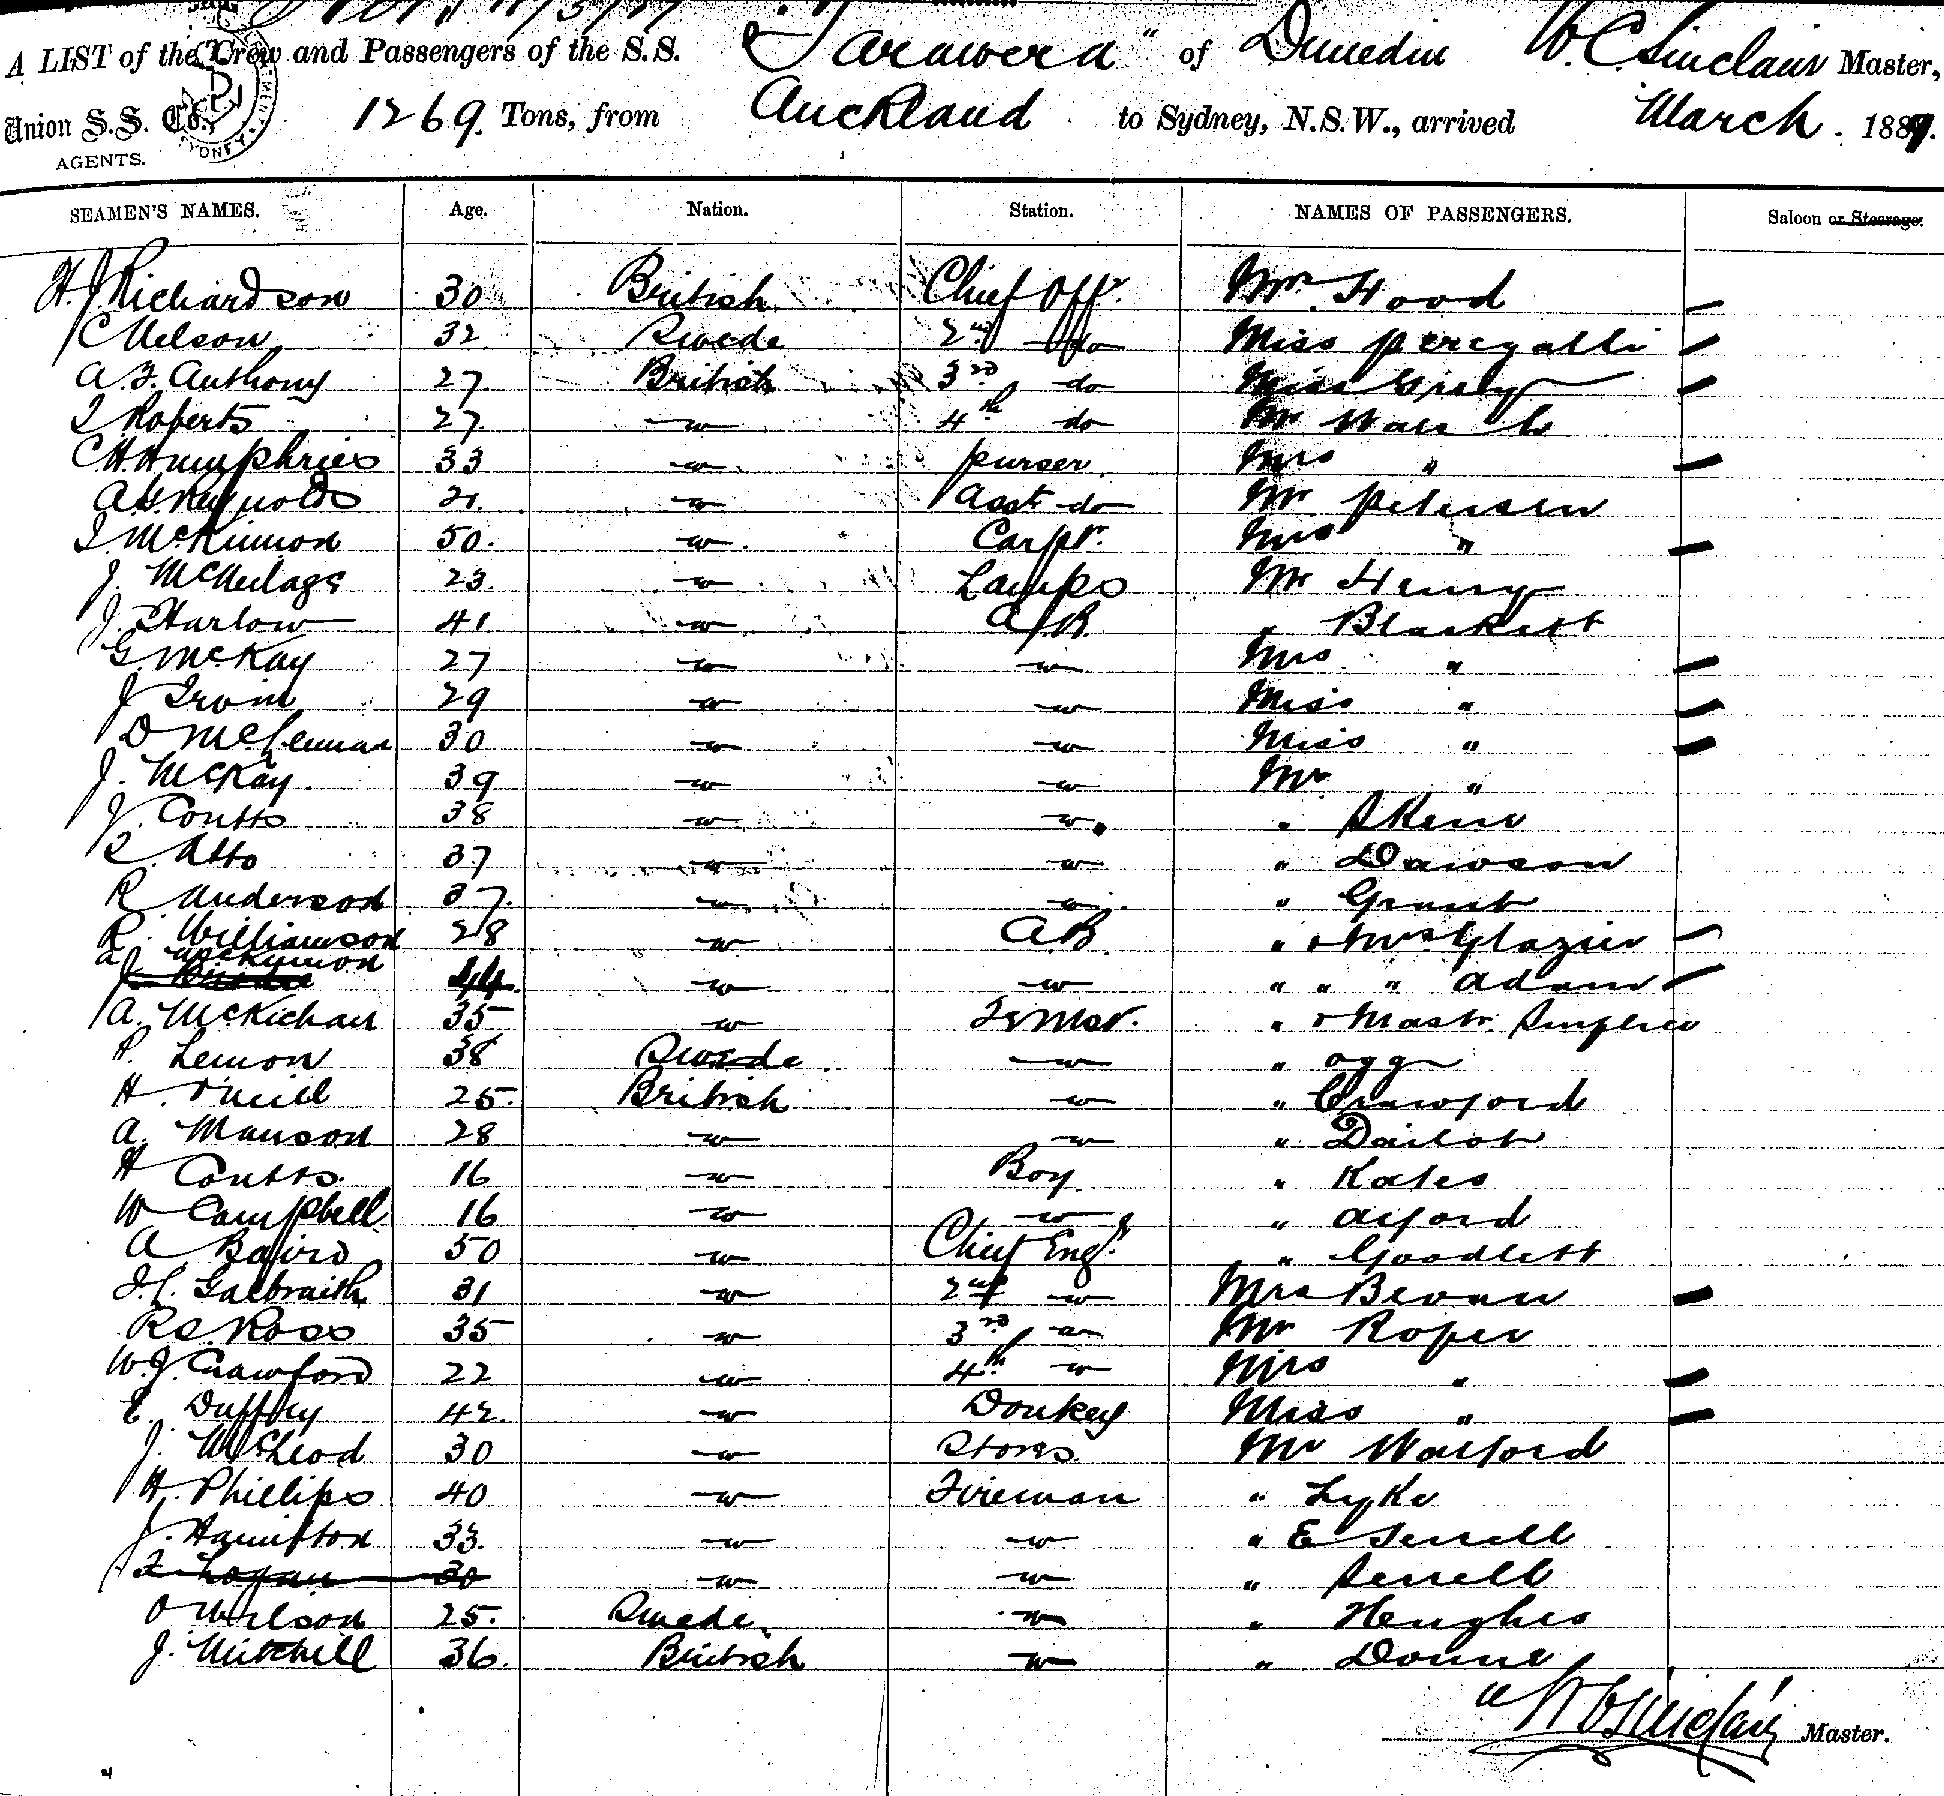 A LIST of the Crew and Passengers of the S.S. "Tarawera" of Dunedin W. C. Sinclair Master,
Union S.S. Co., 1269 Tons, from Auckland to Sydney, N.S.W., arrived March. 1889.
AGENTS.
SEAMEN'S NAMES. Age. Nation. Station. NAMES OF PASSENGERS. Saloon or Steerage.
H. J. Richardson 30 British Chief Offr. Mrs. Hood
C Nelson 32 Swede 2nd do Miss
A. F. Anthony 27 British 3rd do Miss
Roberts 27 " 4th do Mr
C H Humphries 33 " purser Mrs "
A G Reynolds 21. " Asst do Mr Petersen
McKinnon 50. " Carptr. Mrs "
J. 23 " Lamps Mr Henry
J. Harlow 41 " A.B. " Blackett
G. McKay 27 " " Mrs "
J 29 " " Miss "
D McLennan 30 " " Miss "
J. McKay. 39 " " Mr "
J. Coutts 38 " " " Skene
37 " " " Dawson
R Anderson 37. " " " Grant
R. Williamson 28 " A.B. " & Mrs Glazier
A McKinnon 44 " " " " " Adams
A. 35 " " & Mastr.
P. Lemon 38 Swede " " Ogg
H. O'Neill 25. British " " Crawford
A. Manson 28 " "
H Coutts. 16 " Boy " Kates
W Campbell 16 " " " Alford
A Baird 50 " Chief Engr. " Goodlett
Galbraith 31 " 2nd " Mrs Bevan
Ross 35 " 3rd " Mr Roper
W. J. Crawford 22 " 4th " Mrs "
Duffey 42. " Donkey Miss "
J. McLeod 30 " Stores Mr Walford
H. Phillips 40 " Fireman "
J. Hamilton 33. " " " E
Logan 30 " " "
O Nilson 25. Swede " " Hughes
J. Mitchell 36. British " " Donne
W C Sinclair Master.